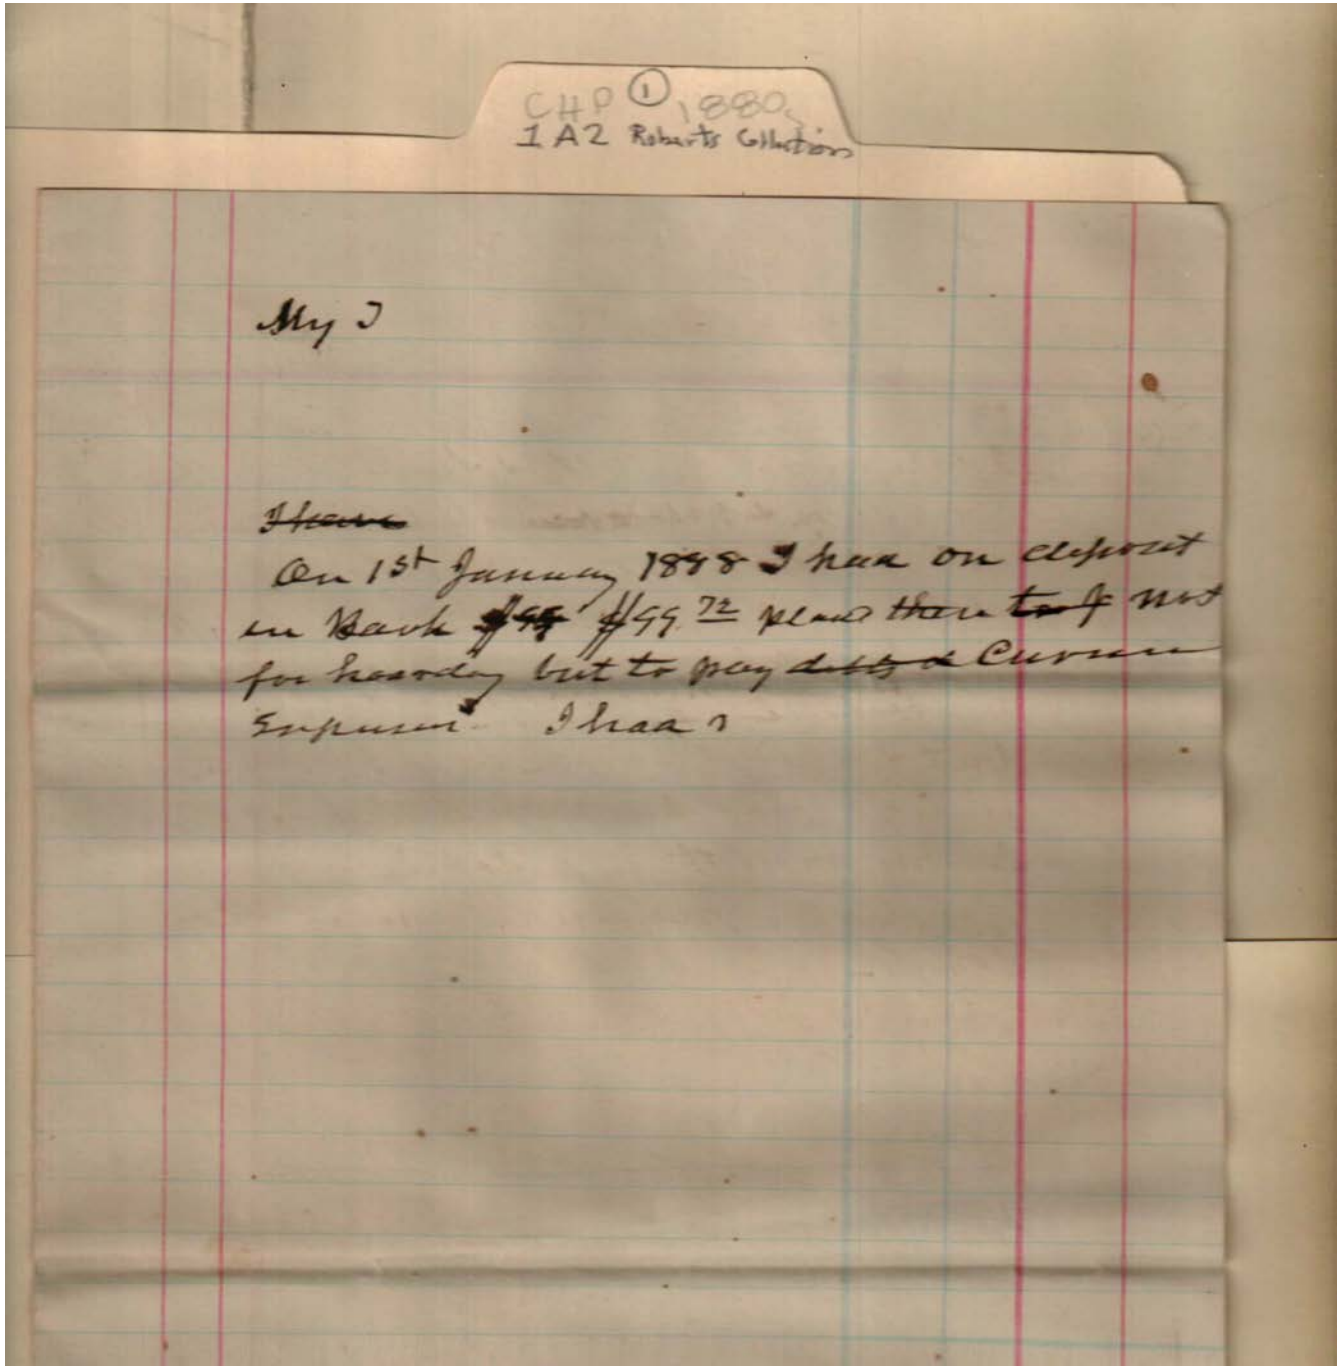 CHP ① 1880s
1 A 2 Roberts Collection
My I
I have
On 1st January 1888 I had on deposit
in Bank $99 $99.72 placed there to f not
for hoarding but to pay debts & Current
Expenses. I had